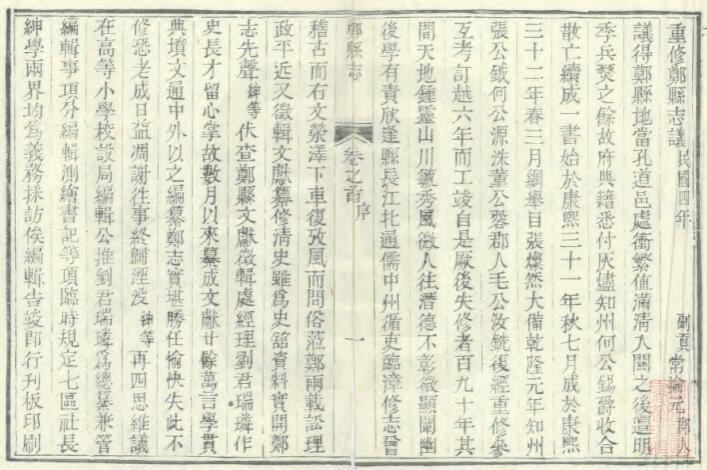 重修鄭縣志議民國四年 副貢常掄元郡人
議得鄭縣地當孔道邑處衝繁值滿清入關之後遭明
季兵燹之餘故府典籍悉付灰燼知州何公錫爵收合
散亡續成一書始於康熙三十一年秋七月成於康熙
三十二年春三月綱舉目張燦然大備乾隆元年知州
張公鉞何公源洙董公榕郡人毛公汝銑復經重修參
互考訂越六年而工竣自是厥後失修者百九十年其
間天地鍾靈山川毓秀風微人往潛德不彰微顯闡幽
後學有責欣逢縣長江北通儒中州循吏臨漳修志晉
鄭縣志 卷之首 序 一
稽古而右文滎澤下車復攷風而問俗蒞鄭兩載訟理
政平近又徵輯文獻纂修清史雖爲史舘資料實開鄭
志先聲紳等伏查鄭縣文獻徵輯處經理劉君瑞璘作
史長才留心掌故數月以來纂成文獻廿餘萬言學貫
典墳文通中外以之編纂鄭志實堪勝任愉快失此不
修恐老成日益凋謝往事終歸湮没紳等再四思維議
在高等小學校設局編輯公推劉君瑞璘爲總纂兼管
編輯事項分編輯測繪書記等項臨時規定七區社長
紳學兩界均爲義務採訪俟編輯告竣即行刊板印刷